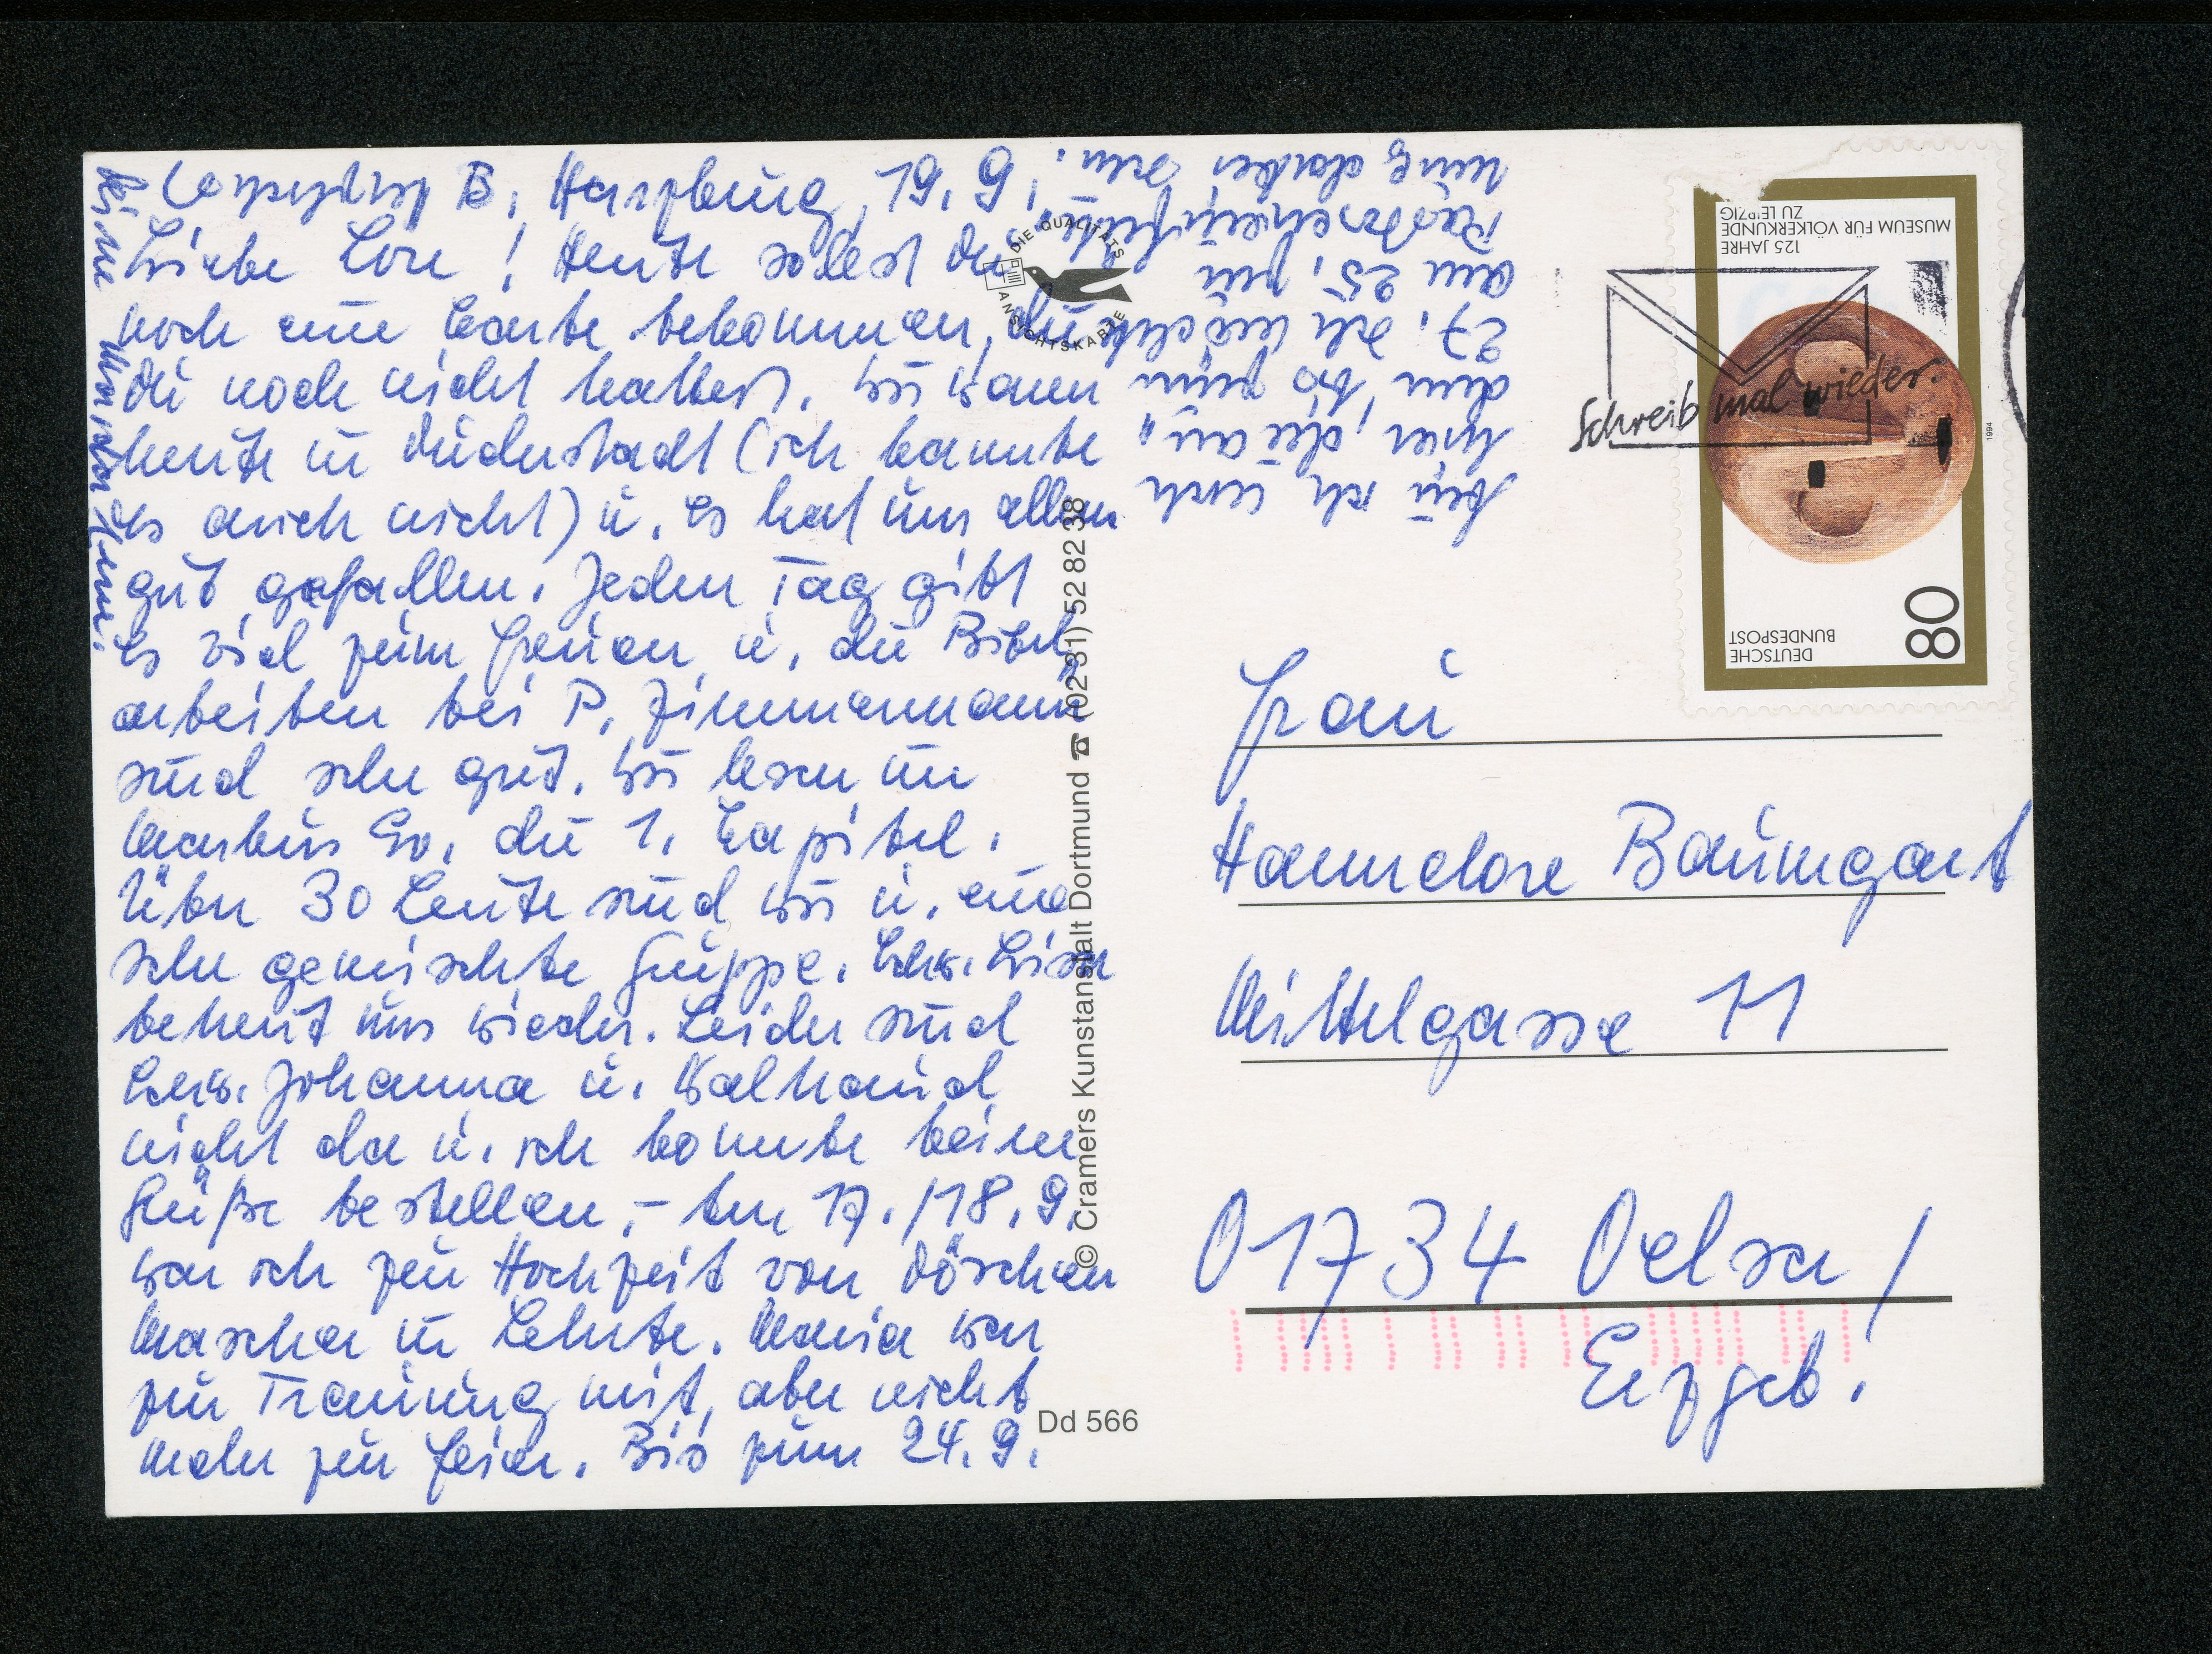 B. Harzburg, 19.9.
Liebe Lore! Heute sollst du
noch eine Karte bekommen, die
du noch nicht hattest. Wir waren
heute in Duderstadt (ich kannte
es auch nicht) u. es hat uns allen
gut gefallen. Jeden Tag gibt
es viel zum Freuen u. die Bibel-
arbeiten bei P. Zimmermann
sind sehr gut. Wir lesen im
Markus Ev. die 1. Kapitel.
Über 30 Leute sind wir u. eine
sehr gemischte Gruppe. Schw.
betreut uns wieder. Leider sind
Schw. Johanna u. Waltraud
nicht da u. ich konnte keine
Grüße bestellen. – Am 17./18.9.
war ich zur Hochzeit von
in Lehrte. Maria war
zur Trauung mit, aber nicht
mehr zur Feier. Bis zum 24.9.
bin ich noch
hier,
dem, bis zum
27. Ich möchte
am 25. zu
sein.
Deine
DIE QUALITÄTS
ANSICHTSKARTE
© Cramers Kunstanstalt Dortmund ☎ (02 31) 52 82 38
Dd 566
125 JAHRE
MUSEUM FÜR VÖLKERKUNDE
ZU LEIPZIG
1994
DEUTSCHE
BUNDESPOST
80
Schreib mal wieder.
Frau
Hannelore Baumgart
Mittelgasse 11
01734 Oelsa/
Erzgeb.